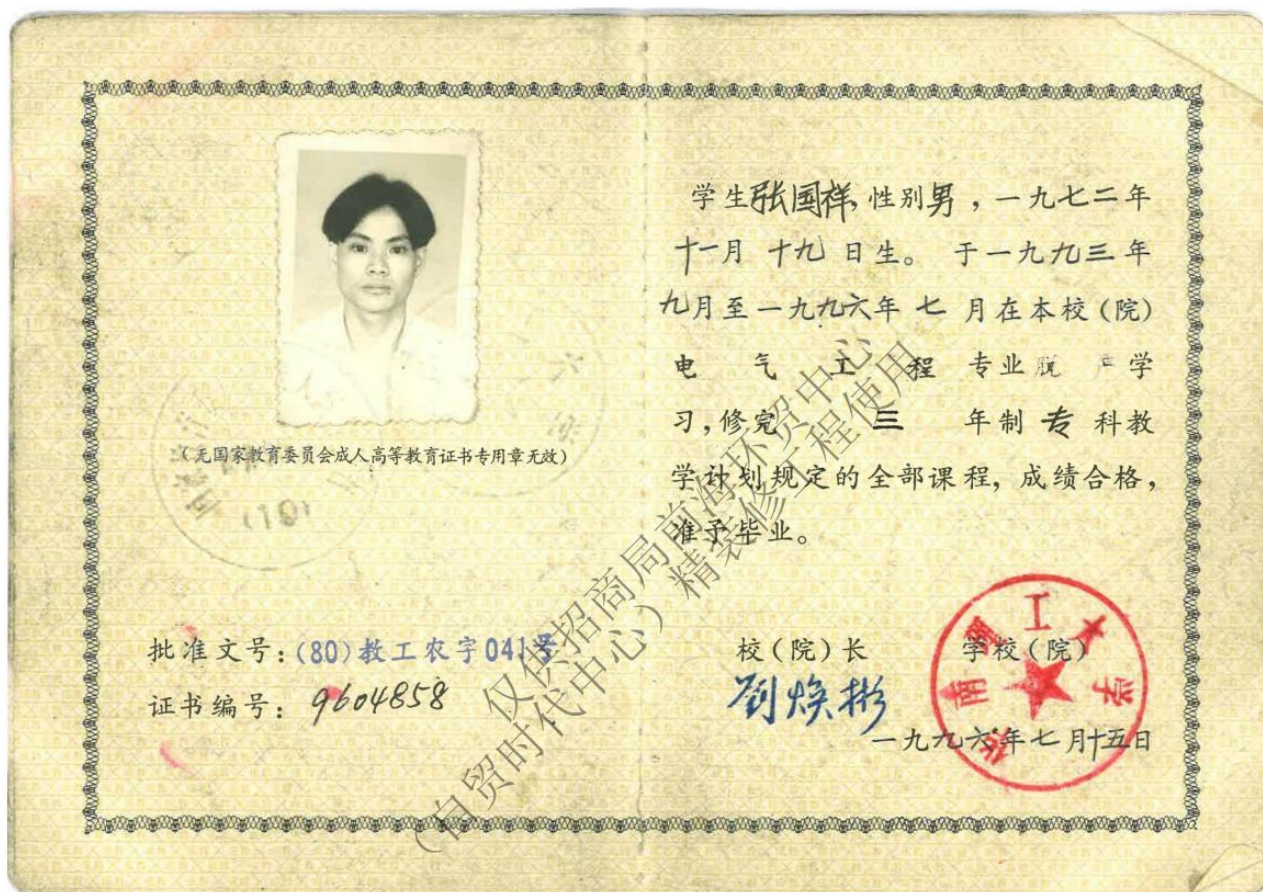 (无国家教育委员会成人高等教育证书专用章无效)
批准文号:(80)教工农字041号
证书编号: 9604858
学生张国祥, 性别男, 一九七二年
十一月 十九 日生。 于一九九三年
九月至一九九六年 七 月在本校(院)
电 气 工 程 专业脱 产学
习, 修完 三 年制 专 科教
学计划规定的全部课程, 成绩合格,
准予毕业。
校(院)长 学校(院)
刘焕彬
一九九六年七月十五日
华南理工大学
仅供招商局前海环贸中心
(自贸时代中心)精装修工程使用